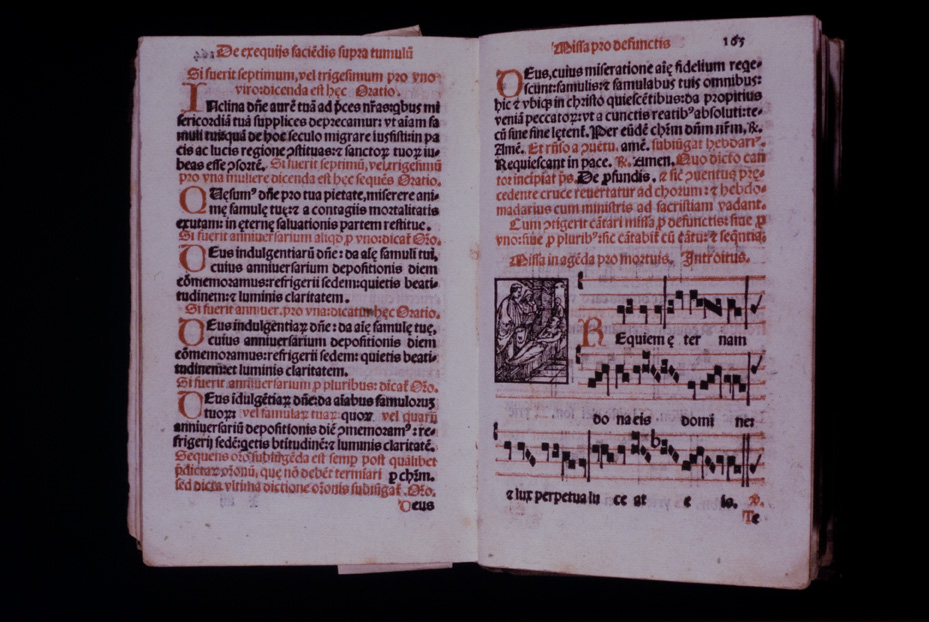 De exequijs faciẽdis supra tumulũ
Si fuerit septimum, vel trigesimum pro vno
viro: dicenda est hęc Oratio.
INclina dñe aurẽ tuã ad p̃ces nr̃as: qbus mi
sericordiã tuã supplices deprecamur: vt aiam fa
muli tui quã de hoc seculo migrare iussisti: in pa
cis ac lucis regione ꝯstituas: ⁊ sanctoꝝ tuoꝝ iu-
beas esse ꝯsortẽ. Si fuerit septimũ, vel trigesimũ
pro vna muliere dicenda est hęc sequẽs Oratio.
QVęsumꝰ dñe pro tua pietate, miserere ani-
mę famulę tuę: ⁊ a contagiis mortalitatis
exutam: in ęternę saluationis partem restitue.
Si fuerit anniuersarium aliqđ ꝓ vno: dicat̃ Oro.
DEus indulgentiarũ dñe: da aię famuli tui,
cuius anniuersarium depositionis diem
cõmemoramus: refrigerii sedem: quietis beati-
tudinem: ⁊ luminis claritatem.
Si fuerit anniuer. pro vna: dicatur hęc Oratio.
DEus indulgentiaꝝ dñe: da aię famulę tuę,
cuius anniuersarium depositionis diem
cõmemoramus: refrigerii sedem: quietis beati-
tudinem: et luminis claritatem.
Si fuerit anniuersarium ꝓ pluribus: dicat̃ Oro.
DEus idulgẽtiaꝝ dñe: da aiabus famulorũ
tuoꝝ: vel famulaꝝ tuaꝝ: quoꝝ vel quarũ
anniuersariũ depositionis diẽ ꝯmemoramꝰ: re-
frigerij sedẽ: qetis btitudinẽ: ⁊ luminis claritatẽ.
Sequens oro subiũgẽda est semp post quãlibet
p̃dictaꝝ oronũ, que nõ debẽt termiari ꝑ chr̃m.
sed dicta vltima dictione orõnis subiũgat̃. Oro.
Deus
Missa pro defunctis 165
DEus, cuius miseratione aię fidelium reqe-
scunt: famulis: ⁊ famulabus tuis omnibus:
hic ⁊ vbiqꝫ in christo quiescẽtibus: da propitius
veniã peccatoꝝ: vt a cunctis reatibꝰ absoluti: te-
cũ sine fine lętent̃. Per eũdẽ chr̃m dñm nr̃m, ℟.
Amẽ. Et rñso a ꝯuetu. amẽ. subiũgat hebdoar.
Requiescant in pace. ℟. Amen. Quo dicto can
tor incipiat ps̃. De ꝓfundis. ⁊ sic ꝯuentus prę-
cedente cruce reuertatur ad chorum: ⁊ hebdo-
madarius cum ministris ad sacristiam vadant.
Cum ꝯtigerit cãtari missã ꝓ defunctis: siue ꝓ
vno: siue ꝓ pluribꝰ: sic cãtabit̃ cũ cãtu: ⁊ seqñtia.
Missa in agẽda pro mortuis. Introitus.
REquiem ę ter nam
do na eis domi ne:
⁊ lux perpetua lu ce at e is. ℣.
Te